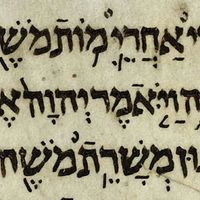 י אַחֲרֵי מוֹת מֹשֶׁ
ה וַיֹּאמֶר יְהוָה אֶ
וּן מְשָׁרֵת מֹשֶׁה